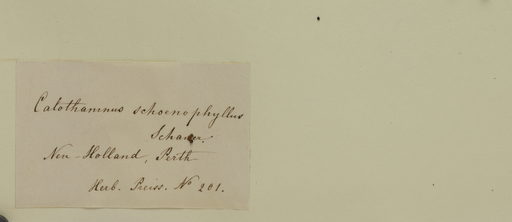 Calothamnus schoenophyllus
Schauer.
New-Holland, Perth
Herb. Preiss. No 201.